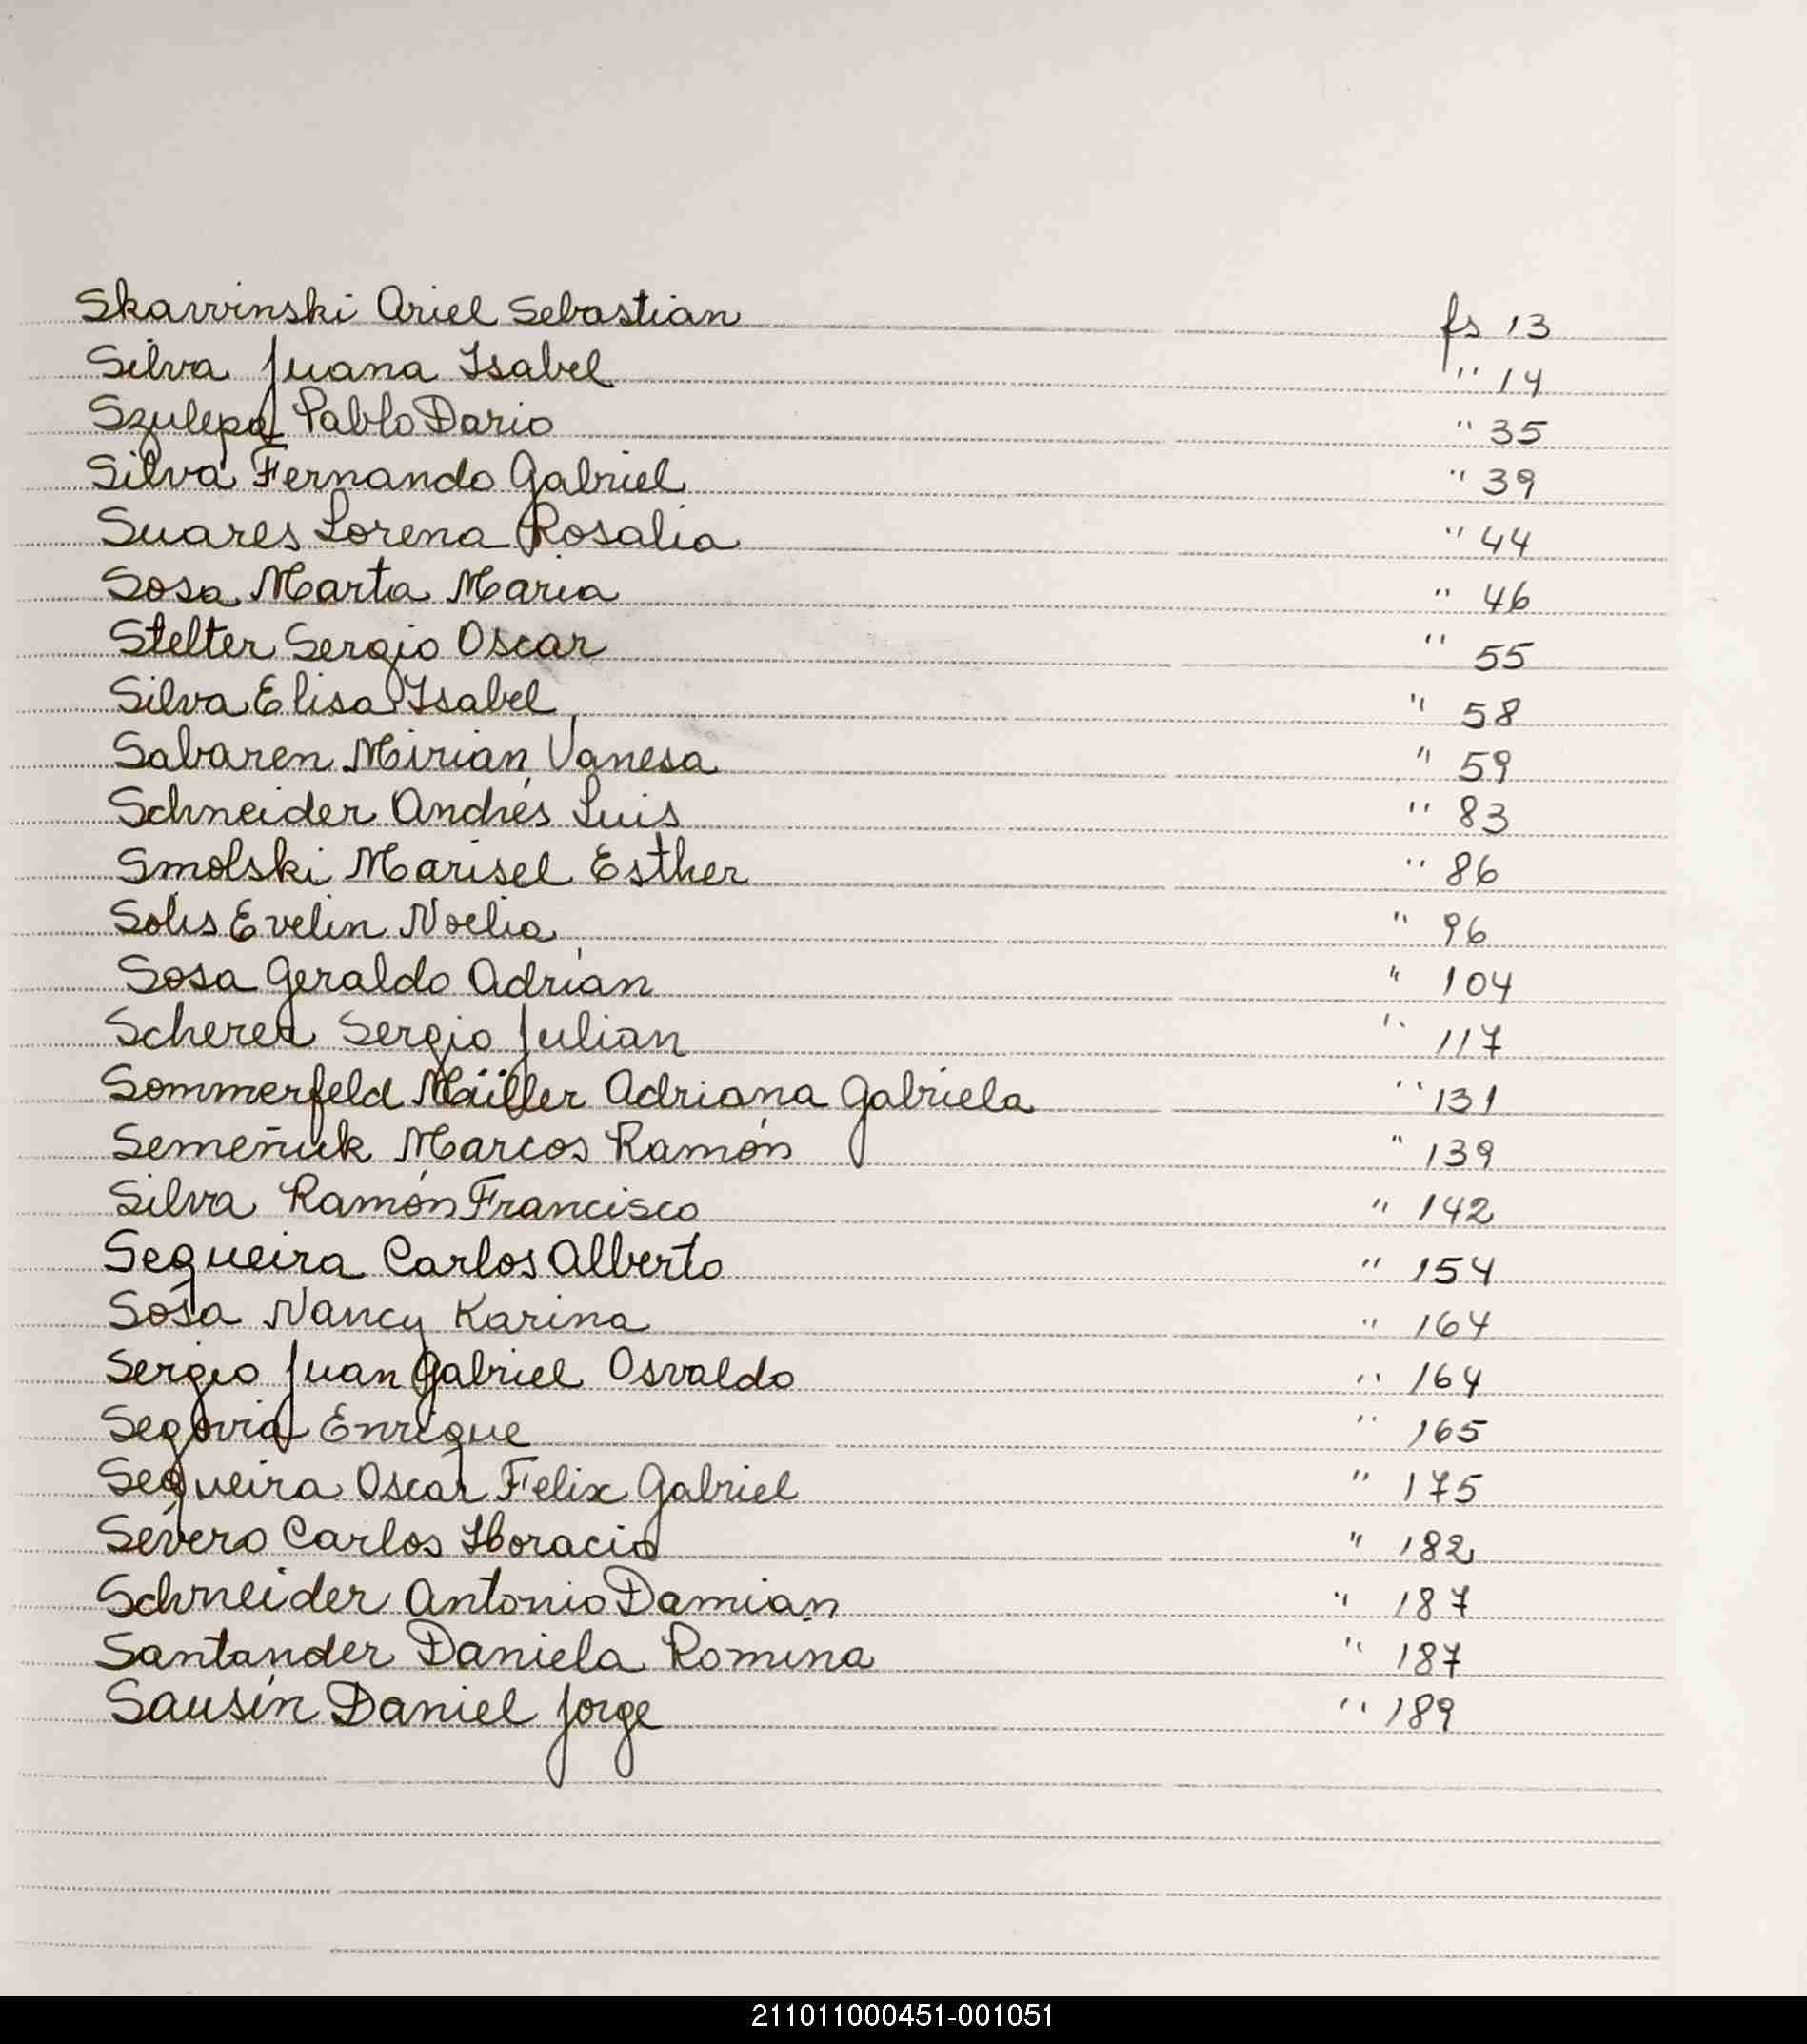 Skavvinski Ariel Sebastian fs 13
Silva Juana Isabel " 14
Szulepa Pablo Dario " 35
Silva Fernando Gabriel " 39
Suares Lorena Rosalia " 44
Sosa Marta Maria " 46
Stelter Sergio Oscar " 55
Silva Elisa Isabel " 58
Sabaren Mirian Vanesa " 59
Schneider Andrés Luis " 83
Smolski Marisel Esther " 86
Solis Evelin Noelia " 96
Sosa Geraldo Adrián " 104
Scherer Sergio Julian " 117
Sommerfeld Müller Adriana Gabriela " 131
Semeñuk Marcos Ramón " 139
Silva Ramón Francisco " 142
Sequeira Carlos Alberto " 154
Sosa Nancy Karina " 164
Sergio Juan Gabriel Osvaldo " 164
Segovia Enrique " 165
Sequeira Oscar Felix Gabriel " 175
Severo Carlos Horacio " 182
Schneider Antonio Damian " 187
Santander Daniela Romina " 187
Sausín Daniel Jorge " 189
211011000451-001051